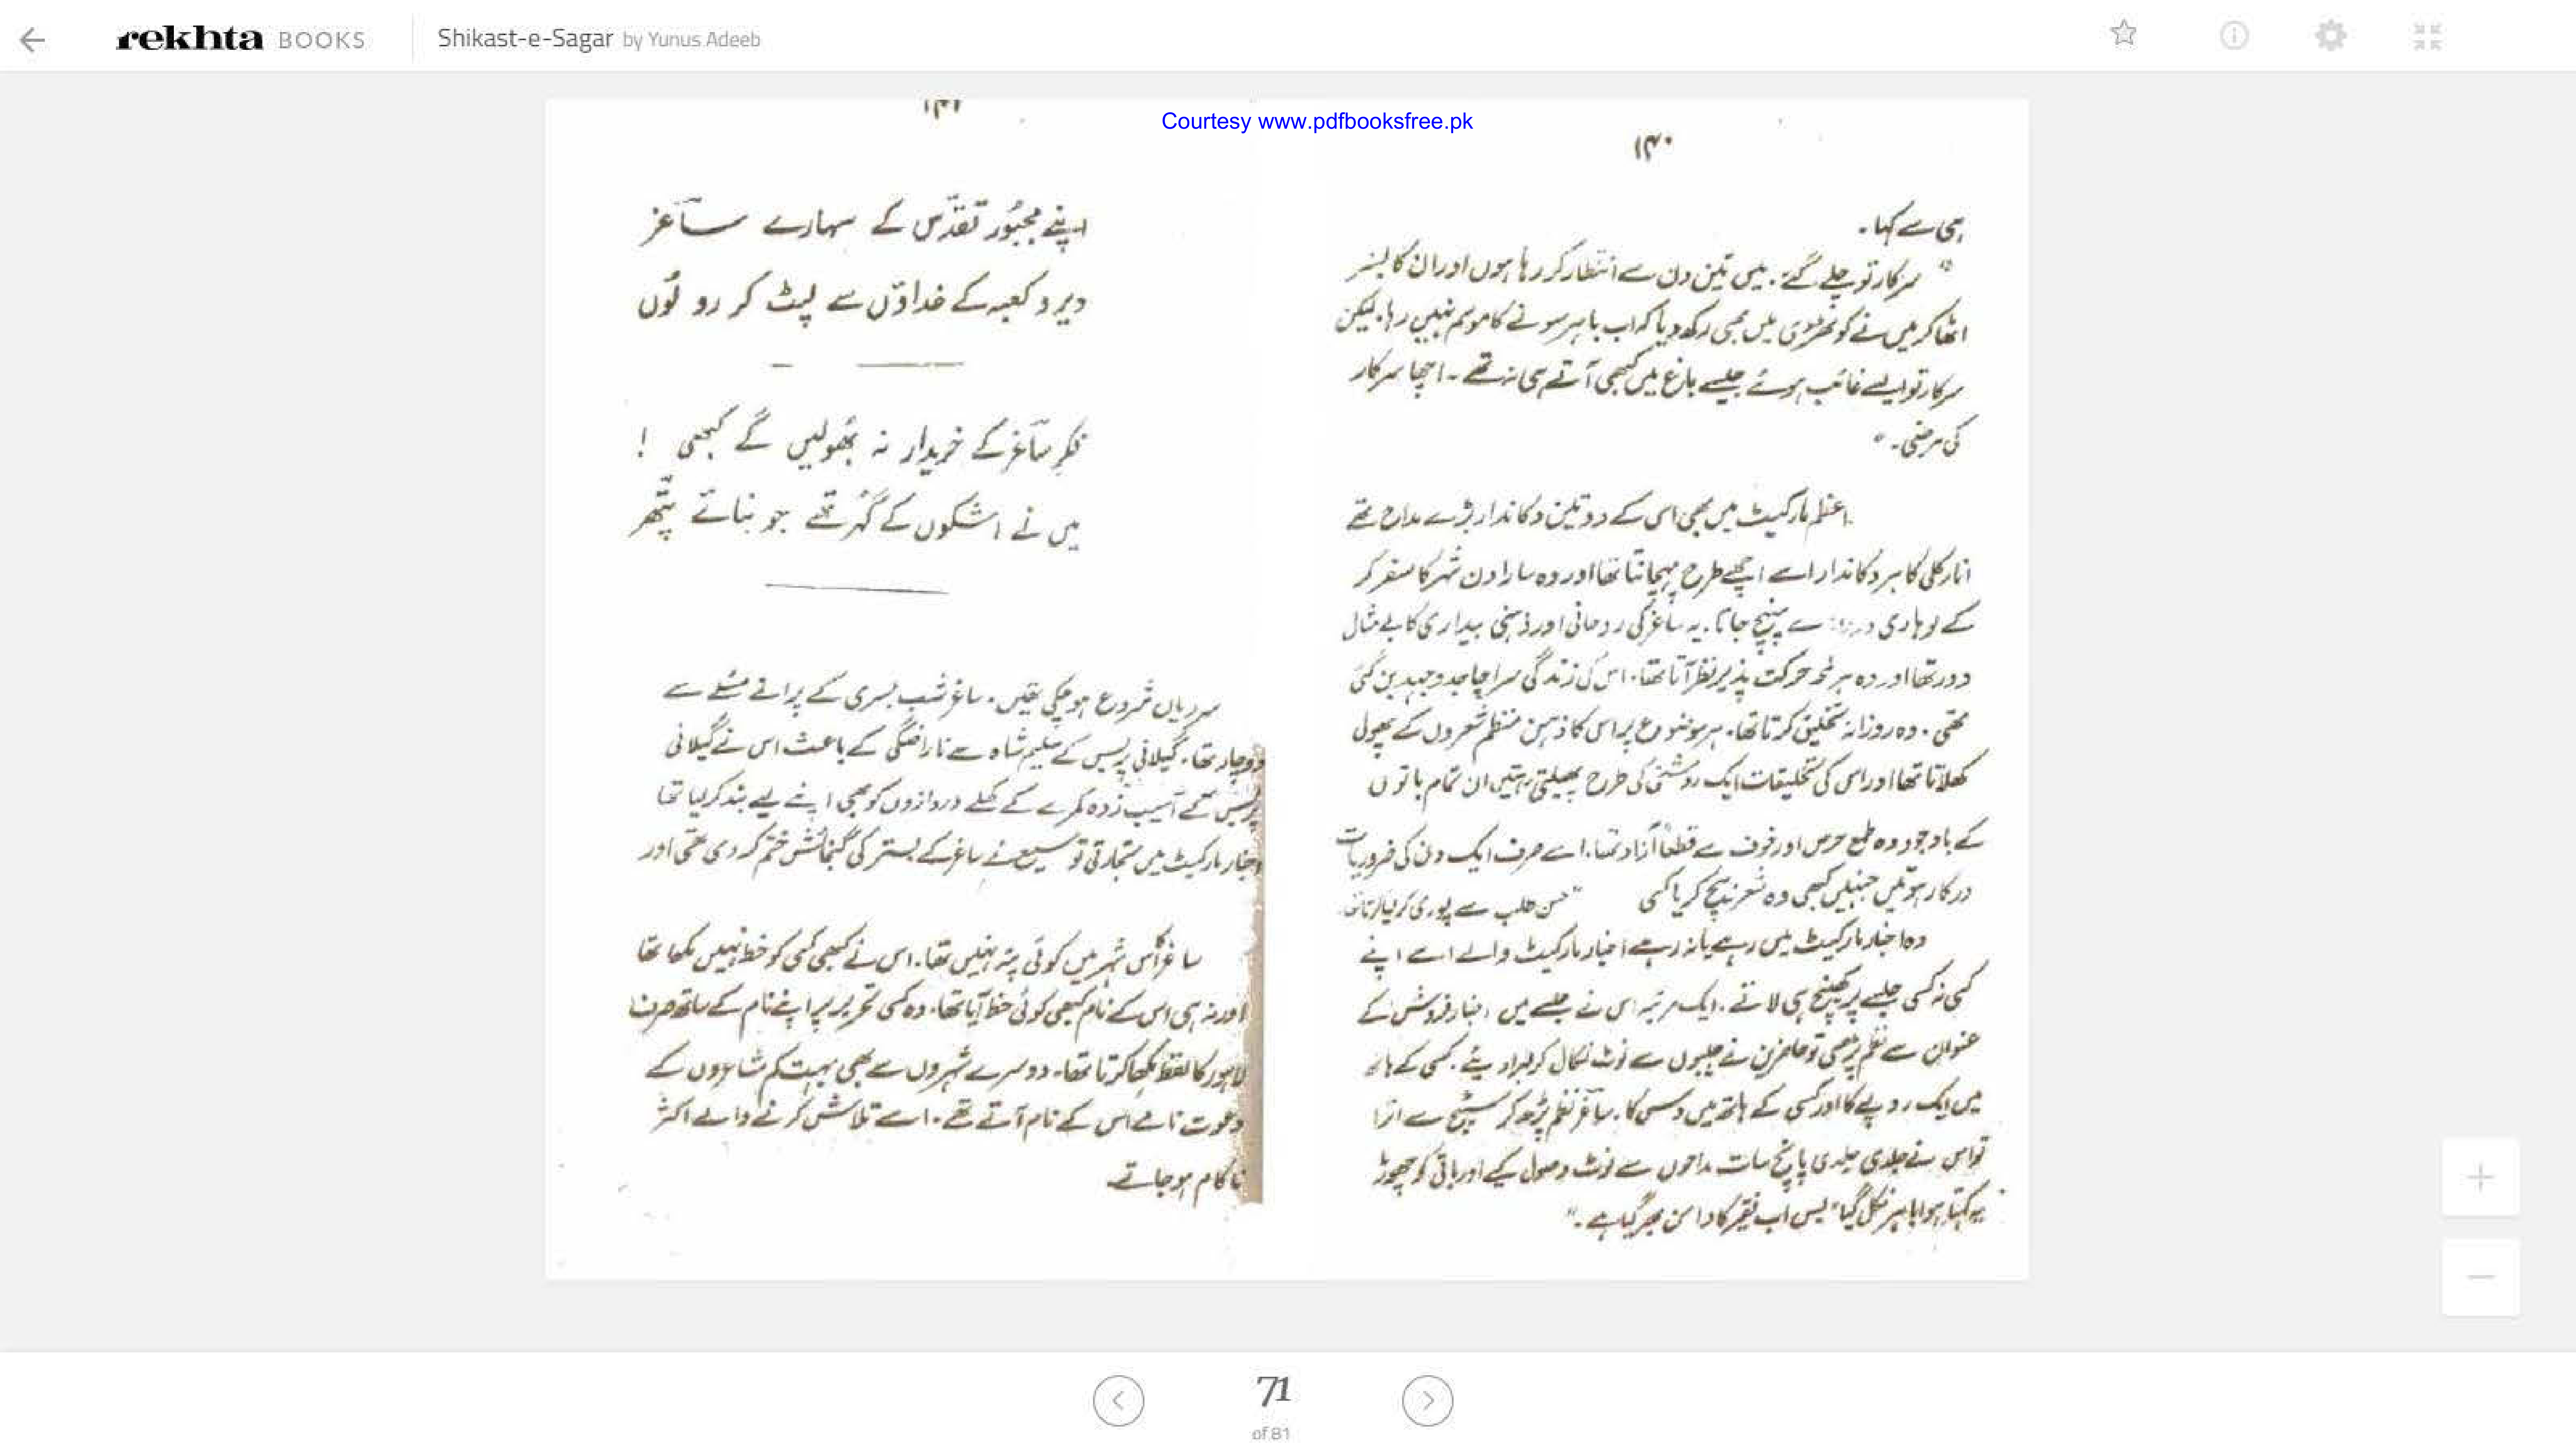 rekhta BOOKS
Shikast-e-Sagar by Yunus Adeeb
Courtesy www.pdfbooksfree.pk
۱۴۰
ہی سے کہا۔
" سرکار تو چلے گئے۔ میں تین دن سے انتظار کر رہا ہوں اور ان کا بستر
اٹھا کر میں نے کوٹھڑی میں بھی رکھ دیا کہ اب باہر سونے کا موسم نہیں رہا۔ لیکن
سرکار تو ایسے غائب ہوئے جیسے باغ میں کبھی آتے ہی نہ تھے۔ اچھا سرکار
کی مرضی۔ "
اعظم مارکیٹ میں بھی اس کے دو تین دکاندار بڑے مداح تھے
انارکلی کا ہر دکاندار اسے اچھے طرح پہچانتا تھا اور وہ سارا دن شہر کا سفر کر
کے لوہاری سے پہنچ جاتا۔ یہ ساغر کی روحانی اور ذہنی بیداری کا بے مثال
دور تھا اور وہ ہر لمحہ حرکت پذیر نظر آتا تھا۔ اس کی زندگی سراپا جدوجہد بن گئی
تھی۔ وہ روزانہ تخلیق کرتا تھا۔ ہر موضوع پر اس کا ذہن منظم شعروں کے پھول
کھلاتا تھا اور اس کی تخلیقات ایک روشنی کی طرح پھیلتی رہتیں ان تمام باتوں
کے باوجود وہ طمع حرص اور خوف سے قطعاً آزاد تھا۔ اسے صرف ایک دن کی ضروریات
درکار ہوتیں جنہیں کبھی وہ شعر بیچ کر یا کسی "حسن طلب سے پوری کر لیا کرتا تھا۔
وہ اخبار مارکیٹ میں رہے یا نہ رہے اخبار مارکیٹ والے اسے اپنے
کسی نہ کسی جلسے پر کھینچ ہی لاتے۔ ایک مرتبہ اس نے جلسے میں اخبار فروش کے
عنوان سے نظم پڑھی تو حاضرین نے جیبوں سے نوٹ نکال کر لہرا دیئے۔ کسی کے ہاتھ
میں ایک روپے کا اور کسی کے ہاتھ میں دس کا۔ ساغر نظم پڑھ کر سٹیج سے اترا
تو اس نے جلدی جلدی پانچ سات مداحوں سے نوٹ وصول کیے اور باقی کو چھوڑ
یہ کہتا ہوا باہر نکل گیا "بس اب فقیر کا دامن بھر گیا ہے۔"
۱۴۱
اپنے مجبُور تقدّس کے سہارے ساغر
دیر و کعبہ کے خداؤں سے لپٹ کر رو لُوں
فکرِ ساغر کے خریدار نہ بھُولیں گے کبھی !
میں نے اشکوں کے گہر تھے جو بنائے پتّھر
سردیاں شروع ہو چکی تھیں۔ ساغر شب بسری کے پرانے مسئلے سے
دوچار تھا۔ گیلانی پریس کے سلیم شاہ سے ناراضگی کے باعث اس نے گیلانی
پریس کے آسیب زدہ کمرے کے کھلے دروازوں کو بھی اپنے لیے بند کر لیا تھا
اخبار مارکیٹ میں تجارتی توسیع نے ساغر کے بستر کی گنجائش ختم کر دی تھی اور
ساغر کا اس شہر میں کوئی پتہ نہیں تھا۔ اس نے کبھی کسی کو خط نہیں لکھا تھا
اور نہ ہی اس کے نام کبھی کوئی خط آیا تھا۔ وہ کسی تحریر پر اپنے نام کے ساتھ صرف
لاہور کا لفظ لکھا کرتا تھا۔ دوسرے شہروں سے بھی بہت کم مشاعروں کے
دعوت نامے اس کے نام آتے تھے۔ اسے تلاش کرنے والے اکثر
ناکام ہو جاتے۔
71
of 81